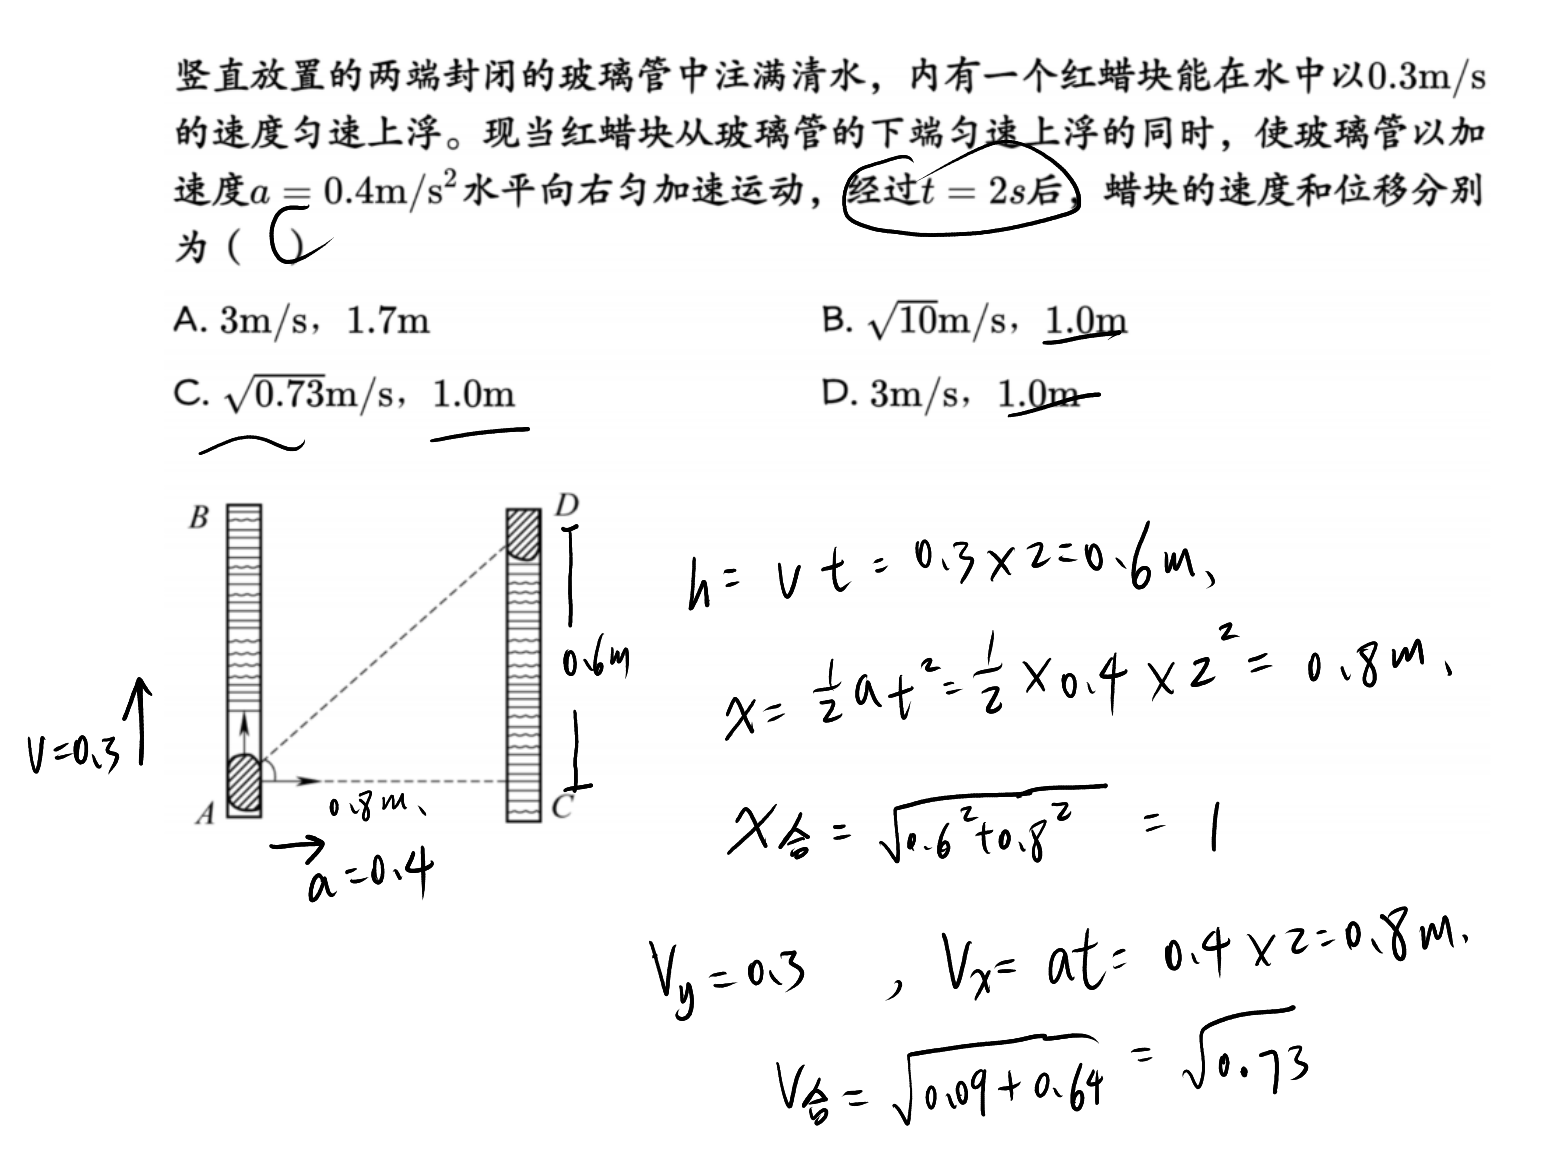 竖直放置的两端封闭的玻璃管中注满清水，内有一个红蜡块能在水中以0.3m/s
的速度匀速上浮。现当红蜡块从玻璃管的下端匀速上浮的同时，使玻璃管以加
速度a = 0.4m/s²水平向右匀加速运动，经过t = 2s后，蜡块的速度和位移分别
为（ C ）
A. 3m/s，1.7m
B. √10m/s，1.0m
C. √0.73m/s，1.0m
D. 3m/s，1.0m
B
D
h = vt = 0.3×2=0.6m、
0.6m
x = ½at²=½×0.4×2² = 0.8m、
v=0.3
A
0.8m、
C
a=0.4
x合 = √0.6²+0.8² = 1
Vy=0.3 , Vx= at= 0.4×2=0.8m.
V合 = √0.09+0.64 = √0.73